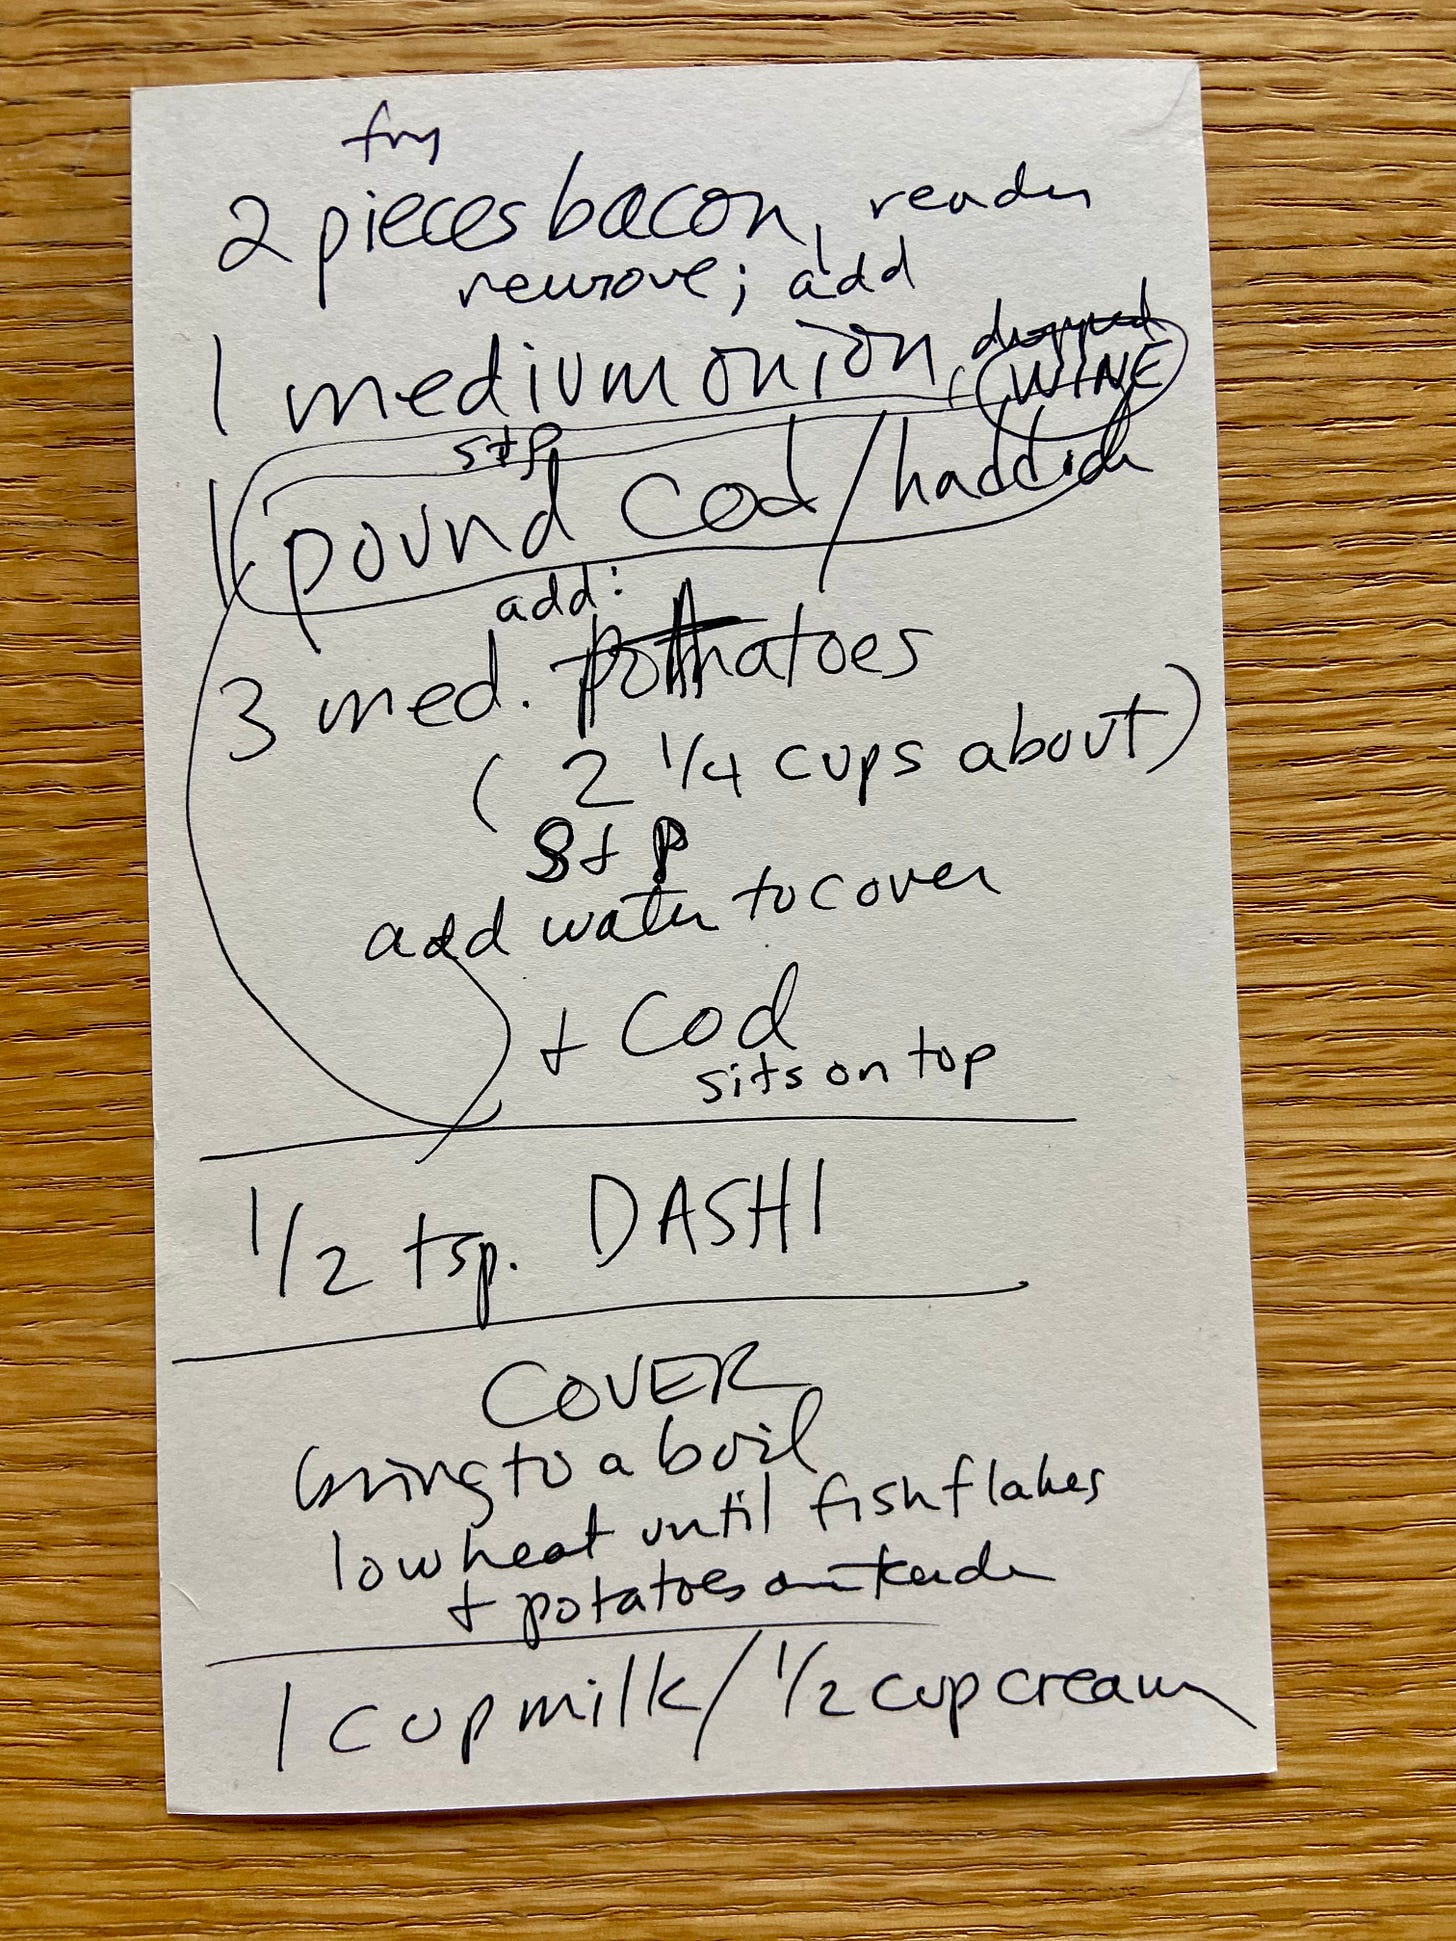 fry
2 pieces bacon, render
remove; add
1 medium onion, chopped
WINE
s + p
1 pound cod/haddock
add:
3 med. potatoes
(2 1/4 cups about)
S + P
add water to cover
+ cod
sits on top
1/2 tsp. DASHI
COVER
bring to a boil
low heat until fish flakes
+ potatoes are tender
1 cup milk/1/2 cup cream